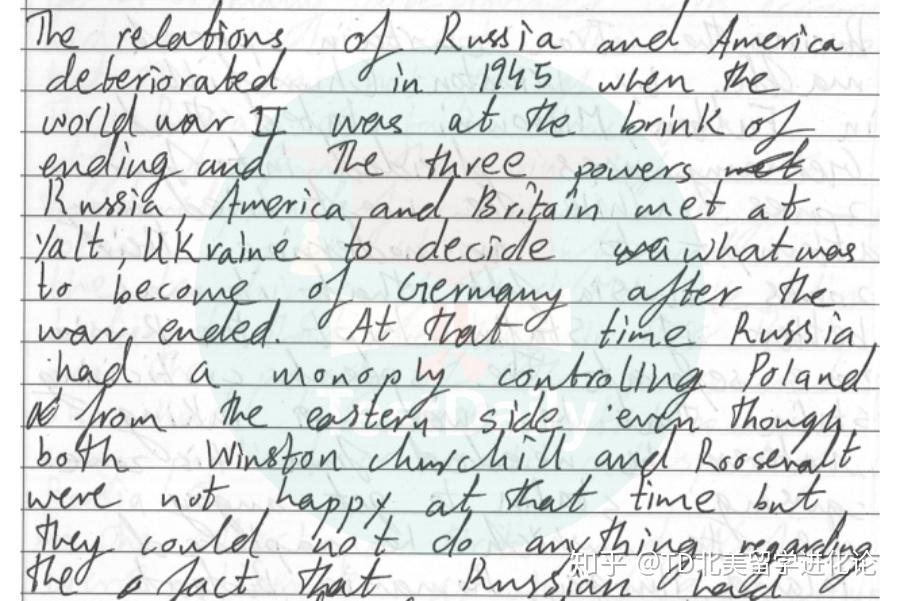 The relations of Russia and America
deteriorated in 1945 when the
world war II was at the brink of
ending and the three powers met
Russia, America and Britain met at
Yalt, Ukraine to decide wa what was
to become of Germany after the
war ended. At that time Russia
had a monoply controlling Poland
from the eastern side even though
both Winston churchill and Roosevalt
were not happy at that time but
they could not do anything regarding
the fact that Russian had
知乎 @TD北美留学进化论